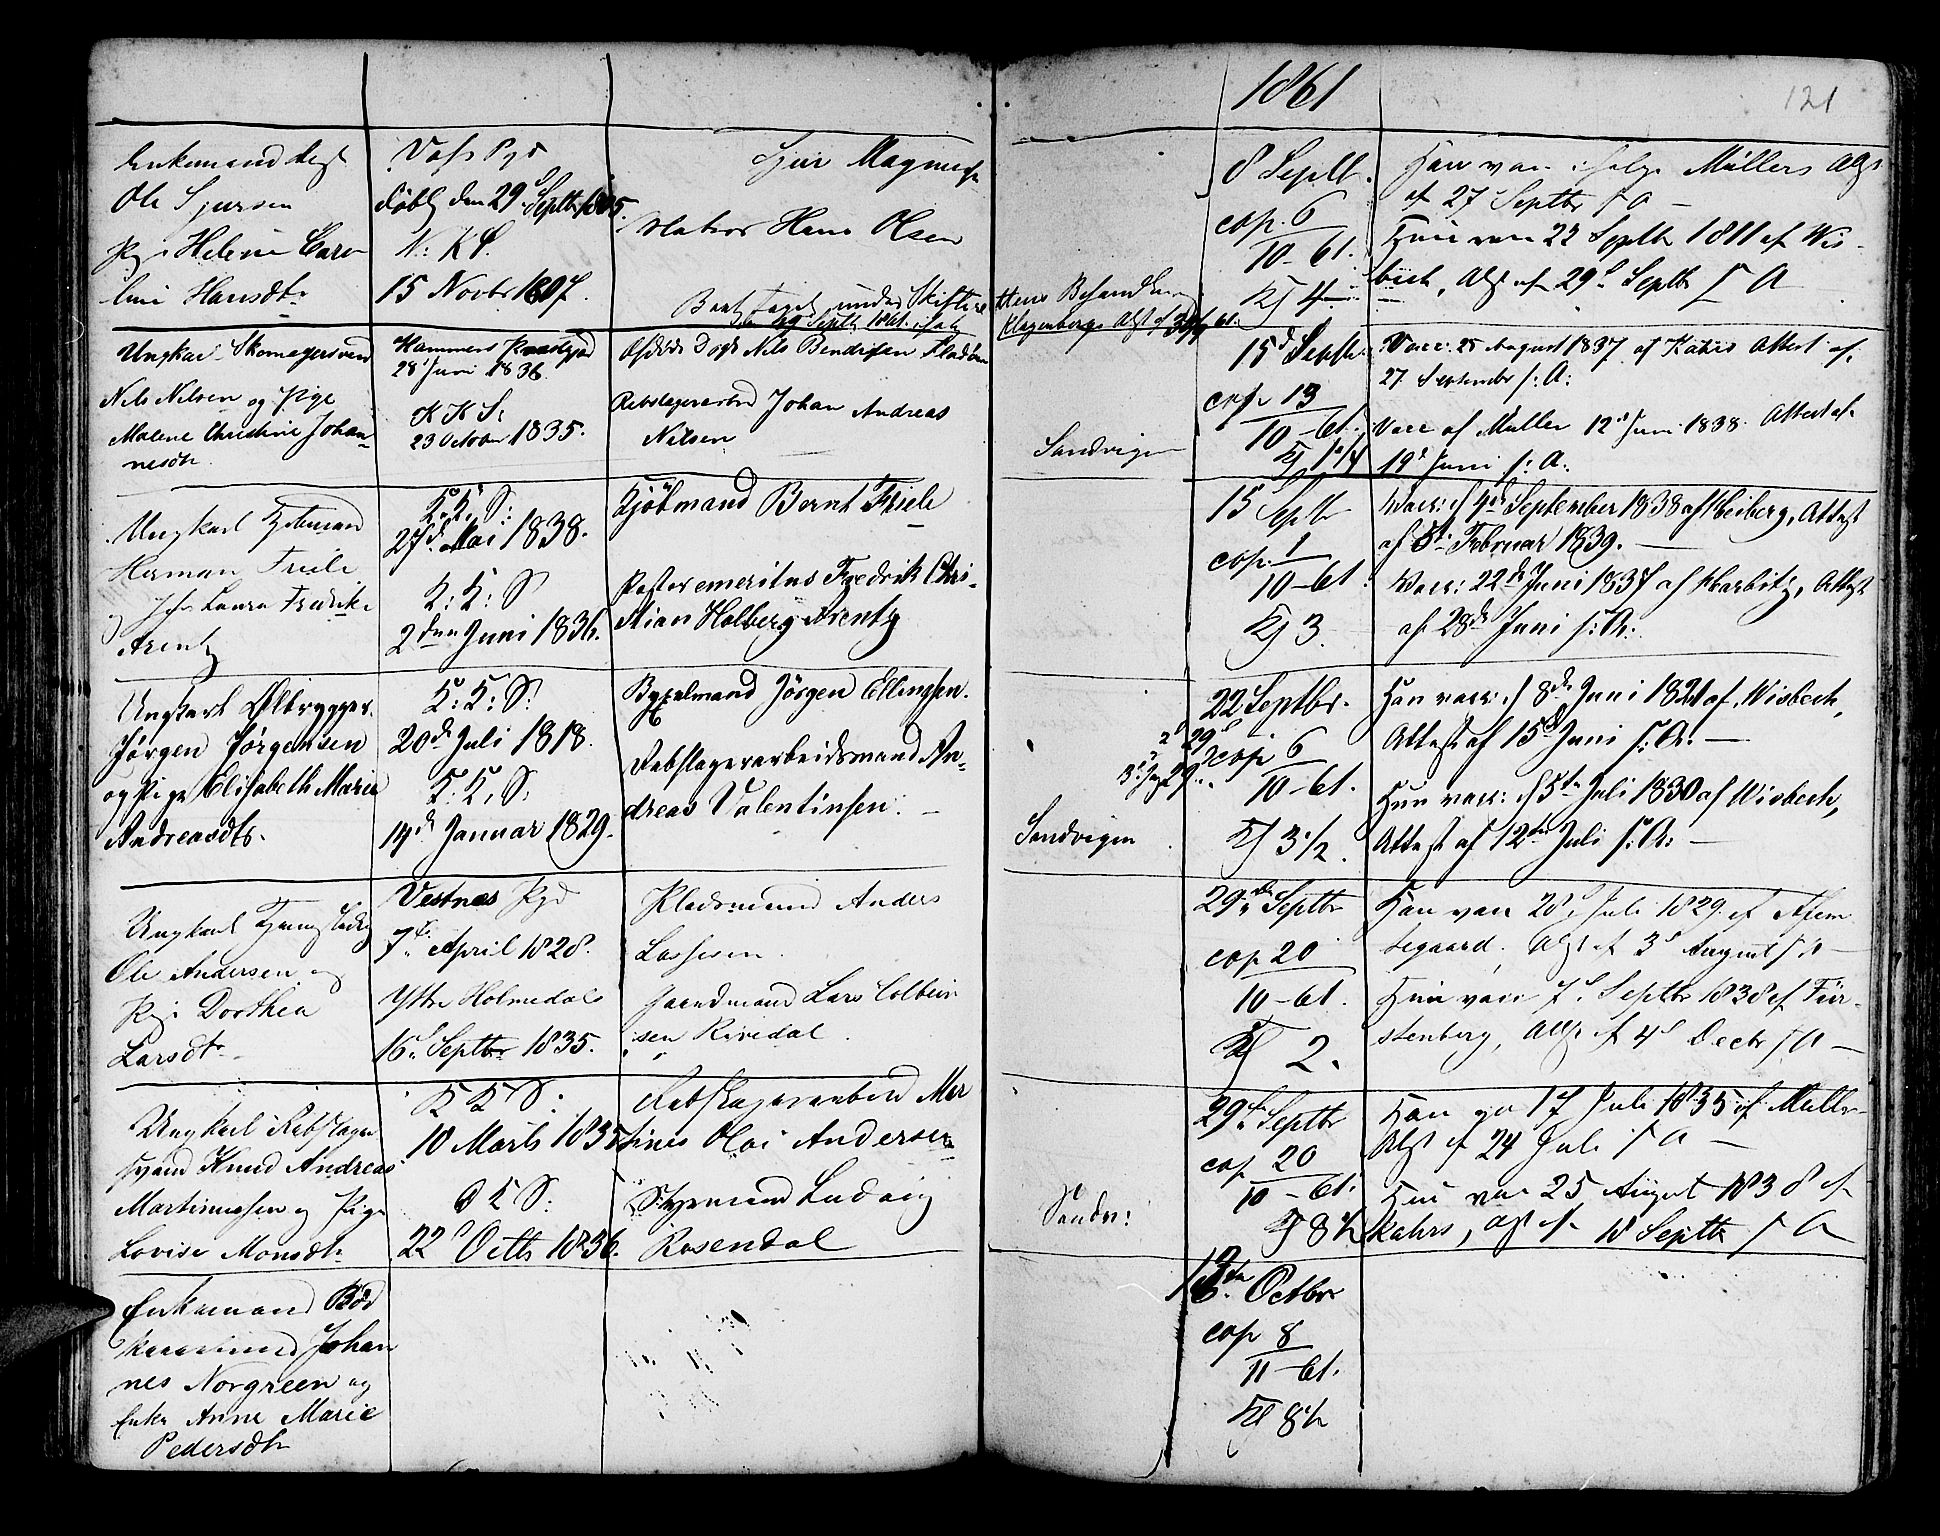 1861
121
Enkemand
Ole Sjursen
Pige Helene Caro
line Hansdtr
Voss Pgd
døbt den 29 Septbr 1805.
N: K S.
15 Novbr 1807.
Sjur Magnus
Matros Hans Olsen
under Skifte
Behandling
8 Septb.
cop. 6
10-61.
4
Han vacc: ifølge Müllers Atst
af 27 Septbr s A
Hun vacc 22 Septbr 1811 af Wis
bech, Atst af 29 Septbr s A
Ungkarl Skomagersvend
Nils Nilsen og Pige
Malene Christine Johan-
nesdtr.
Hammers Præstegjæld
28 Juni 1836.
K K S:
23 October 1835.
Nils Bendixsen
Rebslagerarbd Johan Andreas
Nilsen
Sandvigen
15d Septbr.
cop. 13
10-61.
1 1/4
Vacc: 25 August 1837 af Attest af
27 September s: A:
Vacc af Müller 12d Juni 1838. Attest af
19d Juni s: A:
Ungkarl Kjøbmand
Herman Friele
og Jfr Laura Fredrikke
Arentz
K: K: S:
27d Mai 1838.
K: K: S
2den Juni 1836.
Kjöbmand Bernt Friele
Pastor emeritus Fredrik Chri-
stian Holberg Arentz
15 Septb
cop. 1
10-61
3
Vacc: d 4de September 1838 af Heiberg, Attest
af 5te Februar 1839.
Vacc: 22de Juni 1837 af Harbitz, Attest
af 28de Juni s: A:
Ungkarl Ølbrygger
Jørgen Jørgensen
og Pige Elisabeth Marie
Andreasdtr.
K: K: S:
20d Juli 1818.
K: K: S:
14d Januar 1829.
Bygselmand Jörgen Ellingsen.
Rebslagerarbeidsmand An-
dreas Valentinsen.
Sandvigen
22 Septbr.
2d 29
3d
cop. 6
10-61.
3 1/2
Han vacc: d 8de Juni 1821 af Wisbech,
Attest af 15d Juni s: A:
Hun vacc: d 5te Juli 1830 af Wisbech,
Attest af 12te Juli s: A:
Ungkarl
Ole Andersen og
Pige Dorthea
Larsdtr
Vestnæs Pgd
7de April 1828.
Yttre Holmedals
16d Septbr 1835.
Pladsmand Anders
Lassesen
Gaardmand Lars Colbein
sen Rivedal
29de Septbr
cop 20
10-61.
2.
Han vacc 28d Juli 1829 af
Atst af 3d August s A
Hun vacc 7d Septbr 1838 af Für-
stenberg, Atst af 4d Decbr s A
Ungkarl Rebslager
svend Knud Andreas
Martinussen og Pige
Lovise Monsdtr
K K S:
10 Marts 1835
D K S:
22d Octb 1836.
Rebslagerarbeid Mar
tinus Olai Andersen
Styrmand Ludvig
Rosendal
Sandv:
29de Septbr
cop 20
10-61.
8 1/2
Han vac 17 Juli 1835 af Müller
Atst af 24 Juli s A
Hun vac 25 August 1838 af
Kahrs, Atst af 18 Septbr s A
Enkemand Bød
kersvend Johan
nes Norgreen og
Enke Anne Marie
Pedersdtr
13de Octbr
cop 8
11-61.
8 1/2